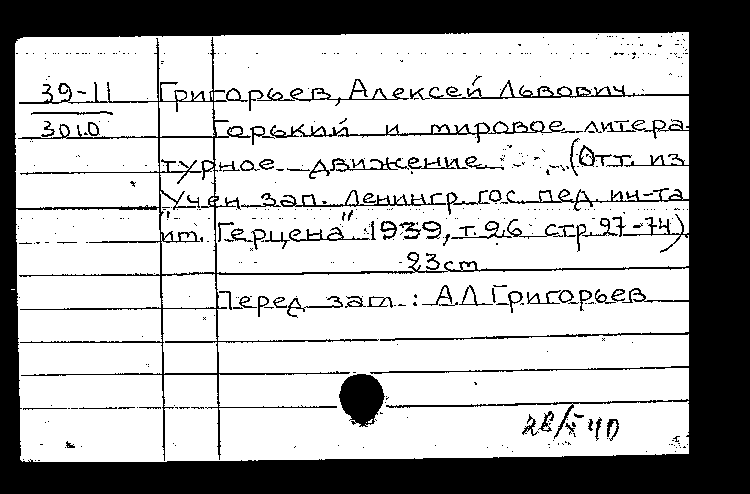 39-11 Григорьев, Алексей Львович.
3010 Горький и мировое литера-
турное движение (Отт. из
"Учен зап. Ленингр. гос. пед. ин-та
им. Герцена" 1939, т. 26 стр. 27-74).
23cm
Перед загл.: А.Л. Григорьев
28/X 40